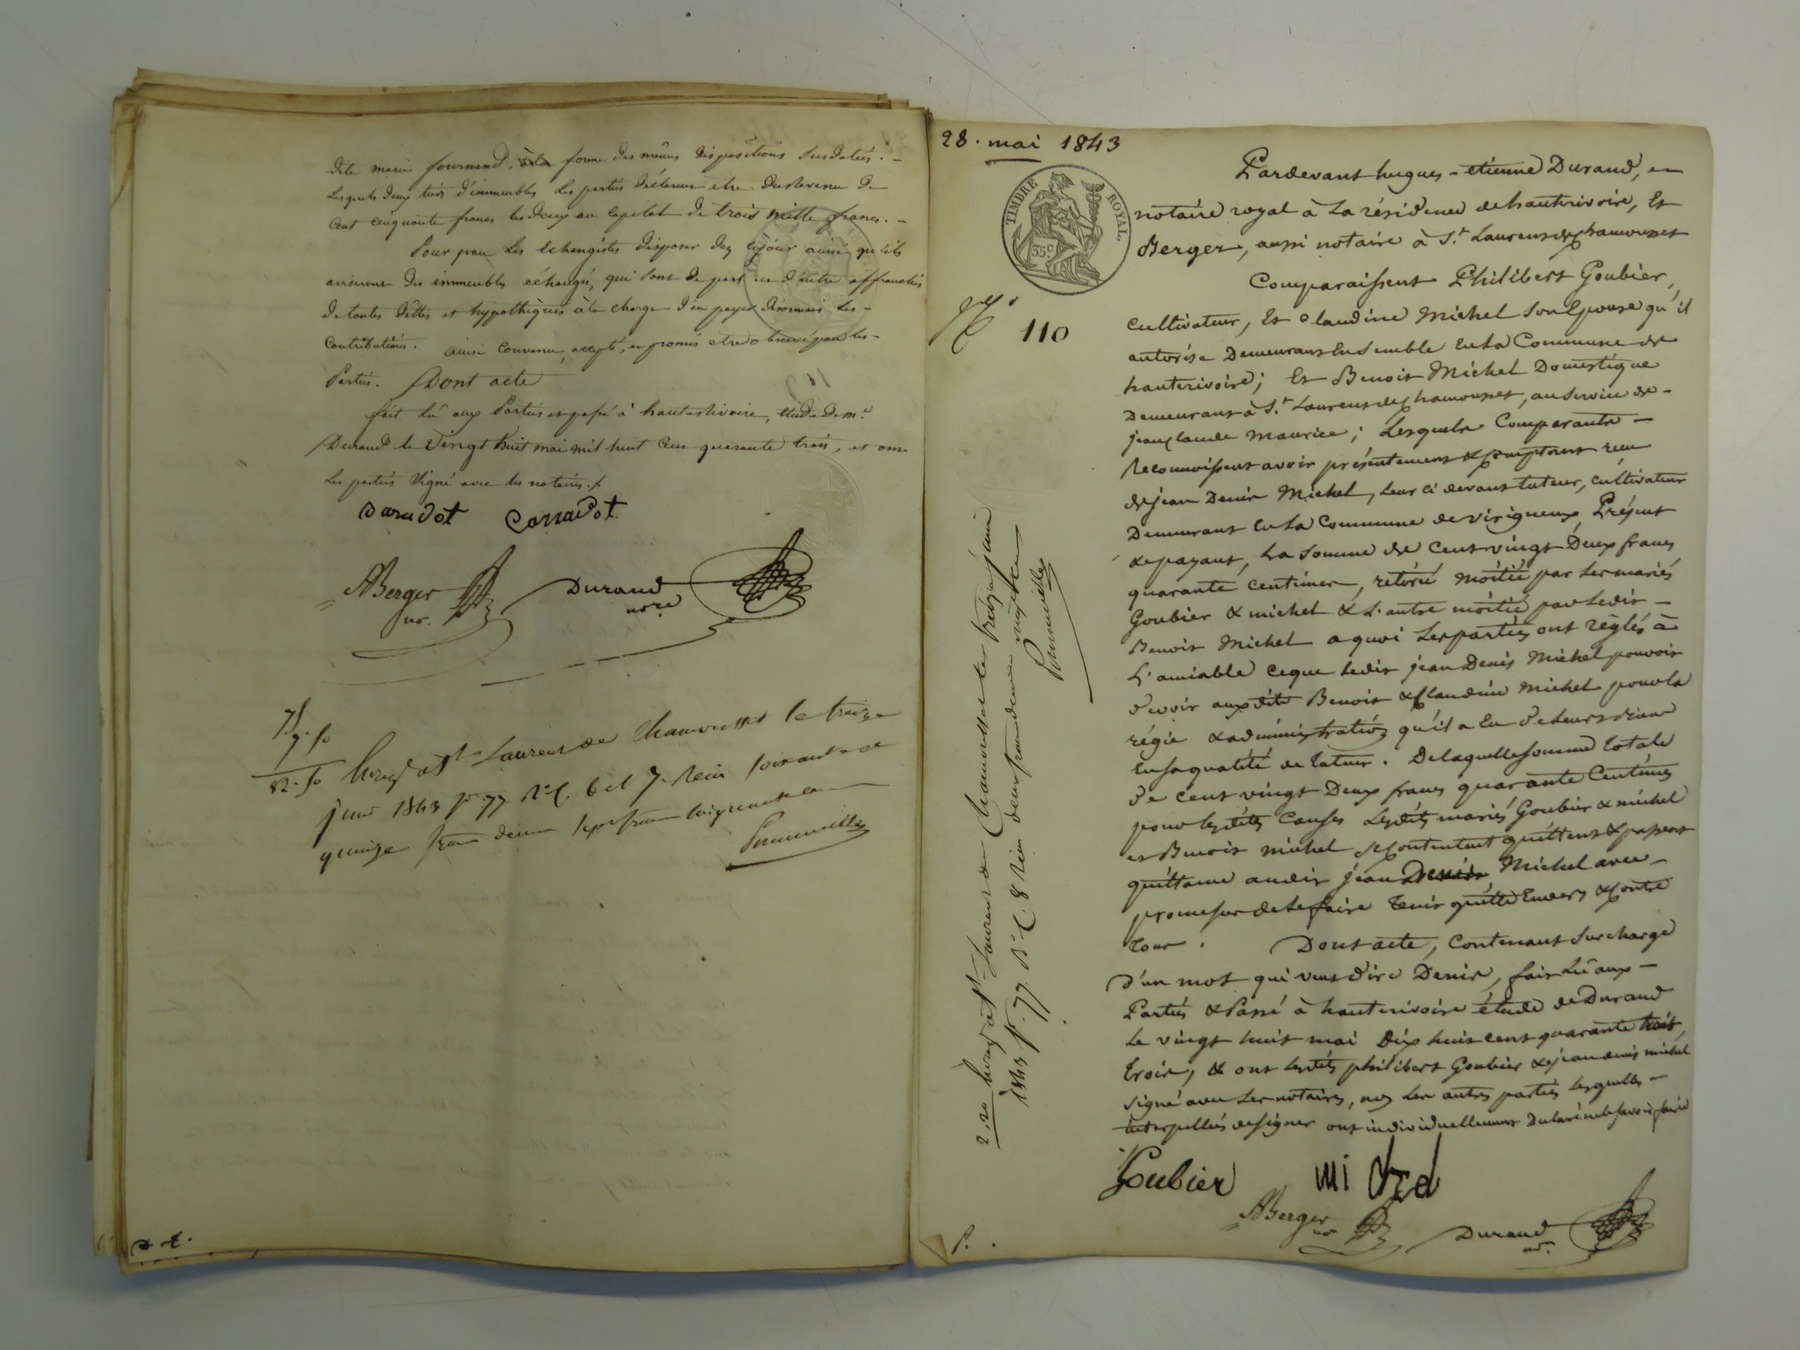 dite marie fournand, à la forme des mêmes dispositions susdatés. -
Lesquels deux tiers d'immeubles les parties déclarent etre du revenu de
cent cinquante francs les deux au capital de trois mille francs. -
Pour par les Echangistes disposer dez cejour ainsi qu'ils
aviseront des immeubles échangés, qui sont de part et d'autre affranchis
de toutes dettes et hypothèques à la charge d'en payer désormais les -
contributions. ainsi convenu, accepté, et promis etre observé par les -
Parties. Dont acte
fait lu aux Parties et passé à hauterivoire, étude de me.
Durand le vingt huit mai mil huit cent quarante trois, et ont
Les parties signé avec les notaires ./.
Daradot Corradot
ABerger
no.
Durand
nore
75.
7. 50
82. 50 Enregé à St Laurent de Chamousset le treize
juin 1843 fo 77 Ro C. 6 et 7. Reçu soixante et
quinze francs decime sept francs cinquante c.
Pommerville
28. mai 1843
TIMBRE ROYAL.
35c.
110
Pardevant hugues - étienne Durand, en
notaire royal à la résidence de hauterivoire, Et
Berger, aussi notaire à St. Laurent de chamousset
Comparaissent Philibert Goubier,
cultivateur, Et claudine Michel son Epouse qu'il
autorise Demeurant Ensemble En la Commune de
hauterivoire; Et Benoit Michel Domestique
Demeurant à St. Laurent de chamousset, au service de -
jean claude Maurice; Lesquels Comparants -
Reconnoissent avoir présentement & comptant reçu
de jean Denis Michel, leur ci devant tuteur, cultivateur
Demeurant En la Commune de virigneux, Présent
& payant, La somme de cent vingt Deux francs
quarante centimes, retirée moitié par les mariés
Goubier & michel & L'autre moitié par Ledit -
Benoit Michel a quoi Les parties ont réglés à
L'amiable ceque Ledit jean Denis Michel pouvoit
devoir auxdits Benoit & Claudine Michel pour la
régie & administration qu'il a Eu de leurs biens
En sa qualité de Tuteur. De laquelle somme totale
de cent vingt Deux francs quarante Centimes
pour lesdites Causes Lesdits mariés Goubier & michel
et Benoit michel se contentent quittent & passent
quittance audit jean Denis Michel avec -
promesse de le faire tenir quitte Envers & contre
tous. Dont acte, Contenant Surcharge
d'un mot qui veut dire Denis, fait Lû aux -
Parties & Passé à hauterivoire étude de Durand
Le vingt huit mai Dix huit cent quarante huit,
trois, & ont lesdits philibert Goubier & jean denis michel
signé avec Les notaires, non Les autres parties lesquelles -
interpellées de signer ont individuellement Declaré ne le savoir faire
Goubier michel
ABerger
no
Durand
no.
2,20 Enregé à St. Laurent de Chamousset le treize juin
1843 fo. 77 Ro C. 8 Reçu deux francs decime vingt cen
Pommerville